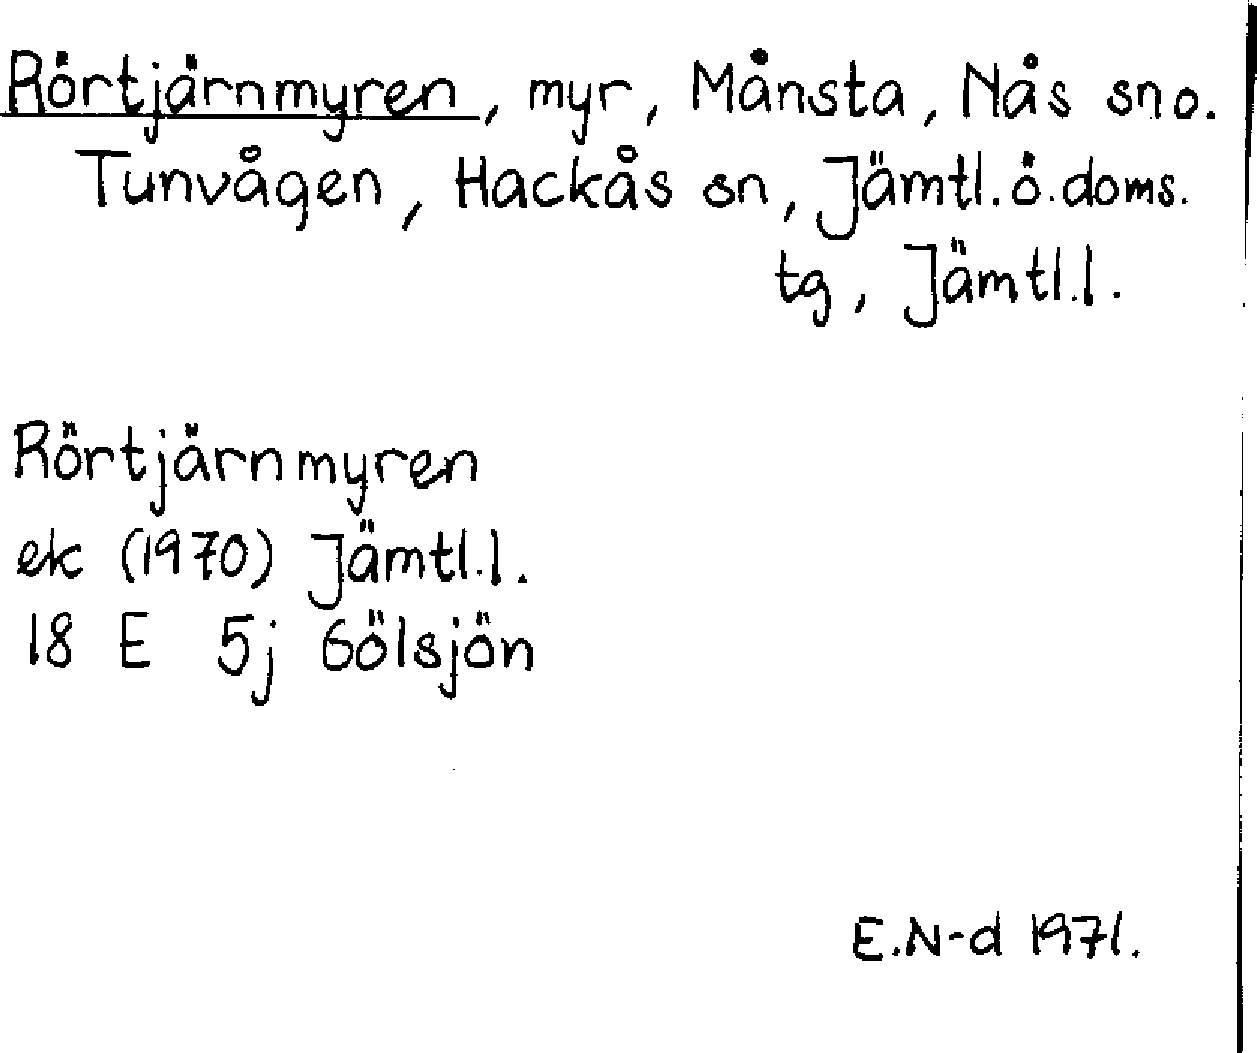 Rörtjärnmyren, myr, Månsta, Nås sn o.
Tunvågen, Hackås sn, Jämtl. ö. doms.
tg, Jämtl. l.
Rörtjärnmyren
ek (1970) Jämtl. l.
18 E 5j Gölsjön
E.N-d 1971.